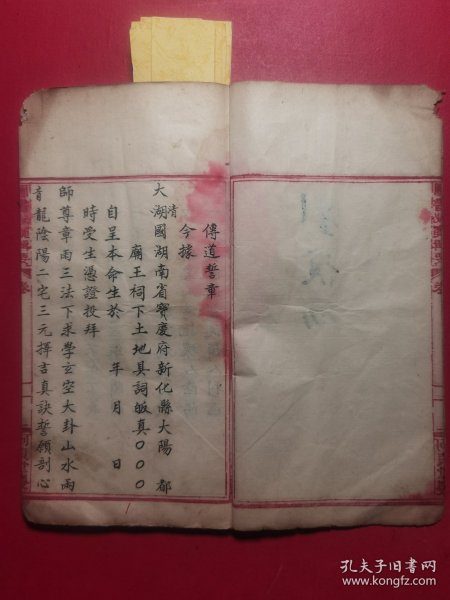 傳道誓章
今據
大清湖國湖南省寶慶府新化縣大陽 都
廟王祠下土地具詞皈真〇〇〇
自呈本命生於 年 月 日
時受生憑證投拜
師尊章雨三法下求學玄空大卦山水兩
青龍陰陽二宅三元擇吉真訣誓願剖心
孔夫子旧书网
www.kongfz.com